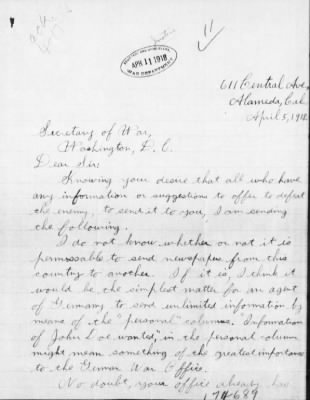 11
APR 11 1918
WAR DEPARTMENT
611 Central Ave.,
Alameda, Cal.
April 5, 1918.
Secretary of War,
Washington, D. C.
Dear Sir:
Knowing your desire that all who have
any information or suggestions to offer to defeat
the enemy, to send it to you, I am sending
the following.
I do not know whether or not it is
permissable to send newspapers from this
country to another. If it is, I think it
would be the simplest matter for an agent
of Germany to send unlimited information by
means of the "personal" columns. "Information
of John Doe wanted," in the personal column
might mean something of the greatest importance
to the German War Office.
No doubt, your office already has
174-689